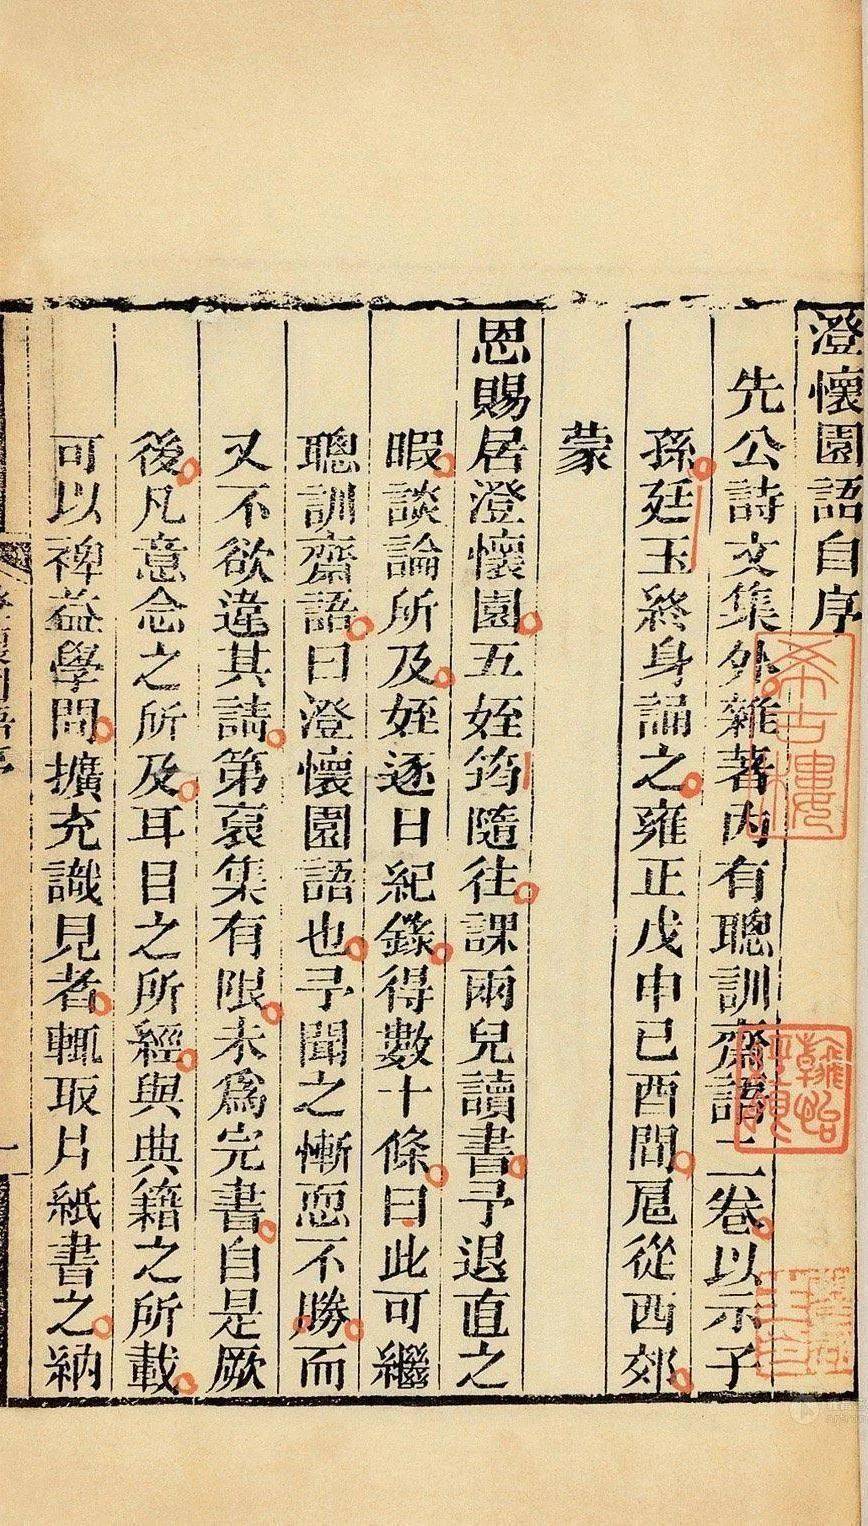 澄懷園語自序
先公詩文集外雜著內有聰訓齋語二卷以示子
孫廷玉終身誦之雍正戊申已酉間扈從西郊
蒙
恩賜居澄懷園五姪筠隨往課兩兒讀書予退直之
暇談論所及姪逐日紀錄得數十條曰此可繼
聰訓齋語曰澄懷園語也予聞之慚恧不勝而
又不欲違其請第裒集有限未爲完書自是厥
後凡意念之所及耳目之所經與典籍之所載
可以裨益學問擴充識見者輒取片紙書之納
希古樓